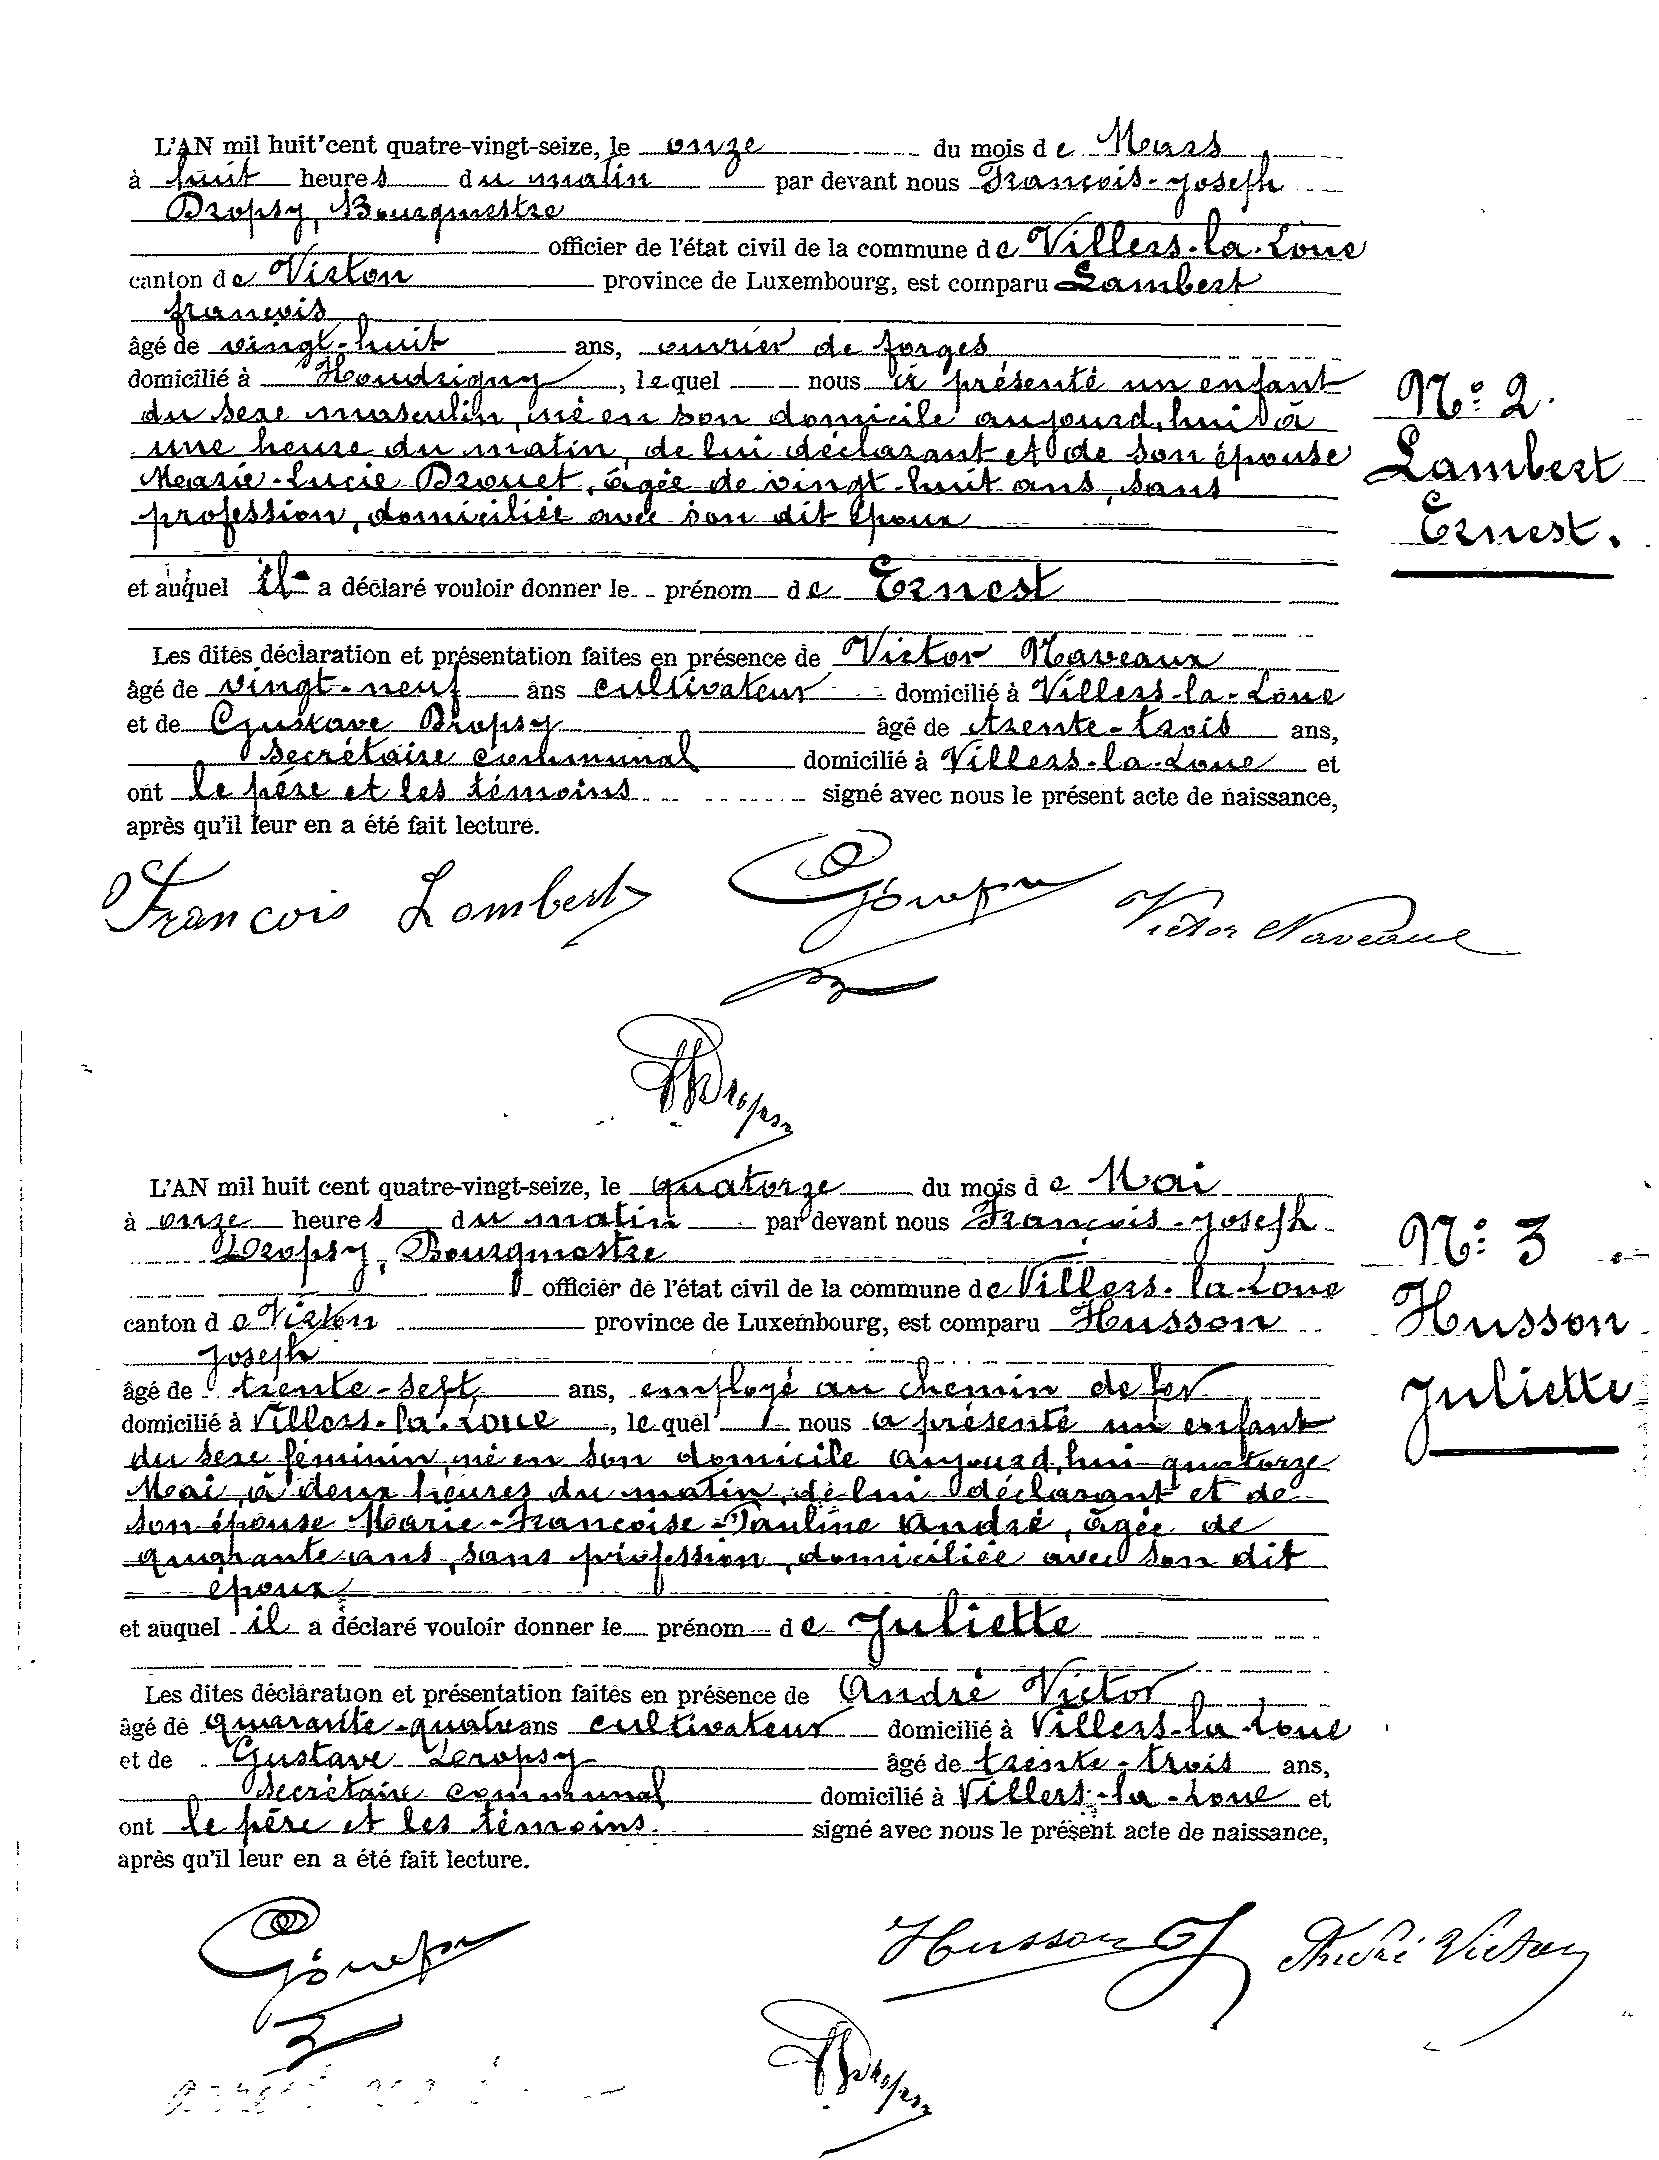 L'AN mil huit cent quatre-vingt-seize, le onze du mois de Mars
à huit heures du matin par devant nous François-Joseph
Dropsy, Bourgmestre
officier de l'état civil de la commune de Villers-la-Loue
canton de Virton province de Luxembourg, est comparu Lambert
françois
âgé de vingt-huit ans, ouvrier de forges
domicilié à Houdrigny, lequel nous a présenté un enfant
du sexe masculin, né en son domicile aujourd'hui à
une heure du matin, de lui déclarant et de son épouse
Marie-Lucie Drouet, âgée de vingt-huit ans, sans
profession, domiciliée avec son dit époux
et auquel il a déclaré vouloir donner le prénom de Ernest
Les dites déclaration et présentation faites en présence de Victor Naveaux
âgé de vingt-neuf ans cultivateur domicilié à Villers-la-Loue
et de Gustave Dropsy âgé de trente-trois ans,
secrétaire communal domicilié à Villers-la-Loue et
ont le père et les témoins signé avec nous le présent acte de naissance,
après qu'il leur en a été fait lecture.
N° 2.
Lambert
Ernest.
François Lambert Victor Naveaux
Dropsy
L'AN mil huit cent quatre-vingt-seize, le quatorze du mois de Mai
à onze heures du matin par devant nous François-Joseph
Dropsy, Bourgmestre
officier de l'état civil de la commune de Villers-la-Loue
canton de Virton province de Luxembourg, est comparu Husson
Joseph
âgé de trente-sept ans, employé au chemin de fer
domicilié à Villers-la-Loue, lequel nous a présenté un enfant
du sexe féminin, né en son domicile aujourd'hui quatorze
Mai, à deux heures du matin, de lui déclarant et de
son épouse Marie-Françoise-Pauline André, âgée de
quarante ans, sans profession, domiciliée avec son dit
époux
et auquel il a déclaré vouloir donner le prénom de Juliette
Les dites déclaration et présentation faites en présence de André Victor
âgé de quarante-quatre ans cultivateur domicilié à Villers-la-Loue
et de Gustave Dropsy âgé de trente-trois ans,
secrétaire communal domicilié à Villers-la-Loue et
ont le père et les témoins signé avec nous le présent acte de naissance,
après qu'il leur en a été fait lecture.
N° 3
Husson
Juliette
Husson J André Victor
Dropsy